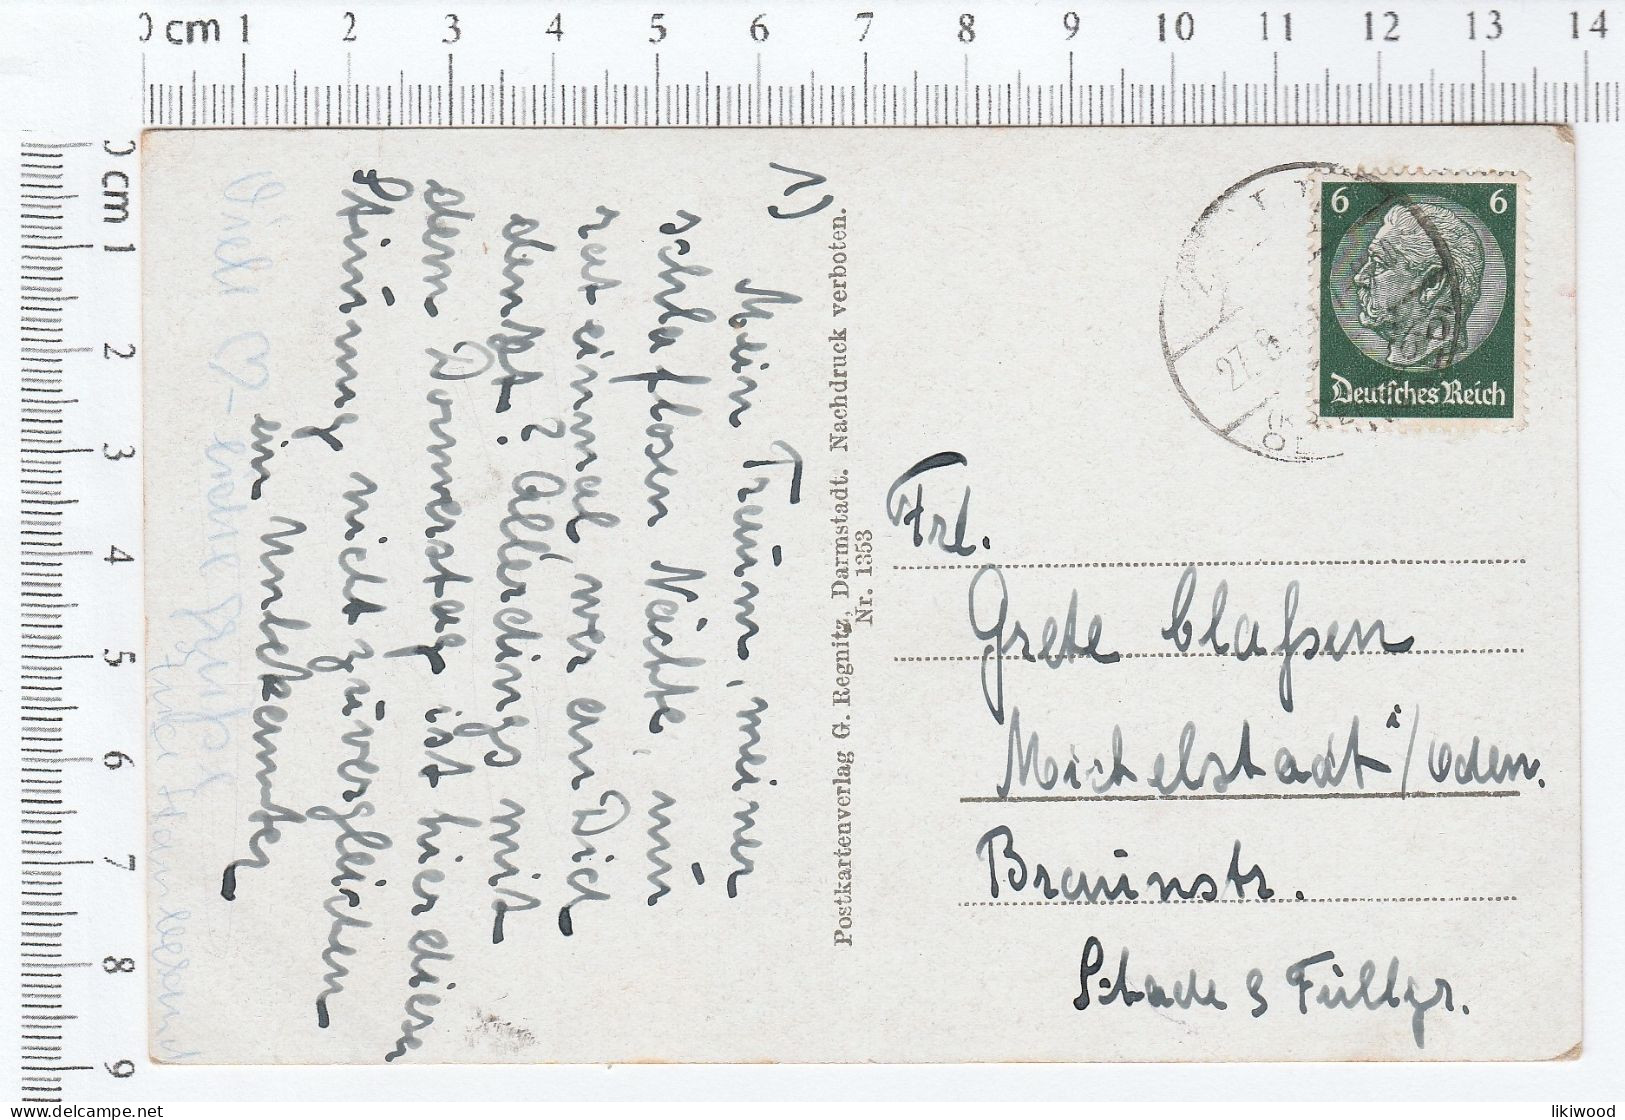 0 cm 1 2 3 4 5 6 7 8 9 10 11 12 13 14
0 cm 1 2 3 4 5 6 7 8 9
1)
Mein Traum, meiner
schlaflosen Nächte, nun
rat einmal wer an Dich
denkt? Allerdings mit
dem Donnerstag ist hier dieser
Stimmung nicht zuvergleichen
ein Unbekannter
Viele
Postkartenverlag G. Regnitz, Darmstadt. Nachdruck verboten.
Nr. 1353
6 6
Deutsches Reich
27. 9.
Frl.
Grete Claßen
Michelstadt i/Oden.
Braunstr.
Stade & Füllgr.
likiwood